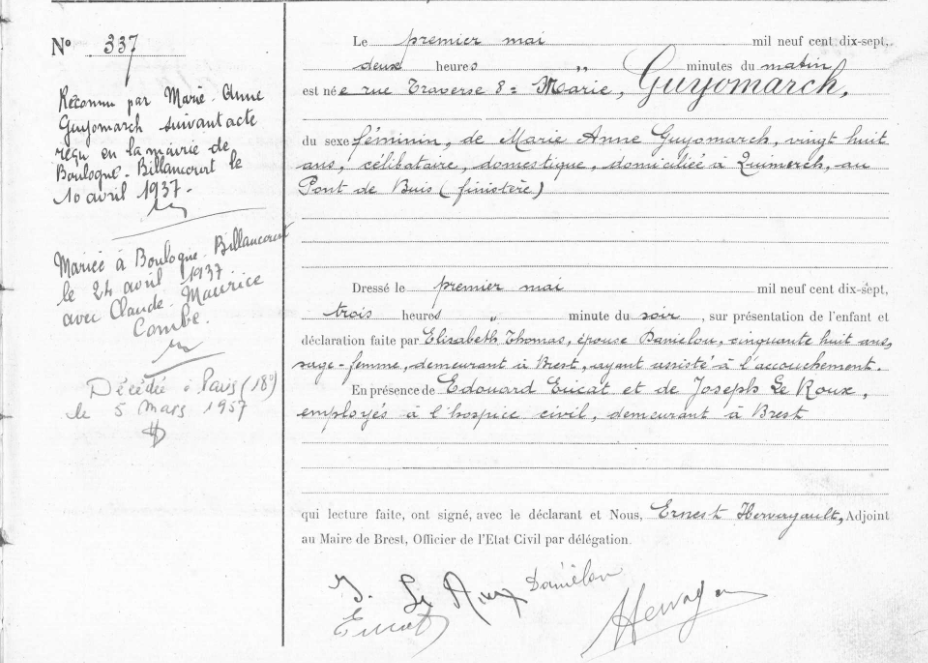 N° 337
Reconnu par Marie-Anne
Guyomarch suivant acte
reçu en la mairie de
Boulogne-Billancourt le
10 avril 1937-
Mariée à Boulogne-Billancourt
le 24 avril 1937
avec Claude-Maurice
Combe.
Décédée à Paris (18e)
le 5 mars 1957
Le premier mai mil neuf cent dix-sept,
deux heures „ minutes du matin
est née rue Traverse 8= Marie, Guyomarch,
du sexe féminin, de Marie Anne Guyomarch, vingt huit
ans, célibataire, domestique, domiciliée à Quimerch, au
Pont de Buis (finistère)
Dressé le premier mai mil neuf cent dix-sept,
trois heures „ minute du soir, sur présentation de l'enfant et
déclaration faite par Elisabeth Thomas, épouse Danielou, cinquante huit ans,
sage-femme, demeurant à Brest, ayant assisté à l'accouchement.
En présence de Edouard Euicat et de Joseph Le Roux,
employés à l'hospice civil, demeurant à Brest
qui lecture faite, ont signé, avec le déclarant et Nous, Ernest Hervagault, Adjoint
au Maire de Brest, Officier de l'Etat Civil par délégation.
J. Le Roux Daniélou